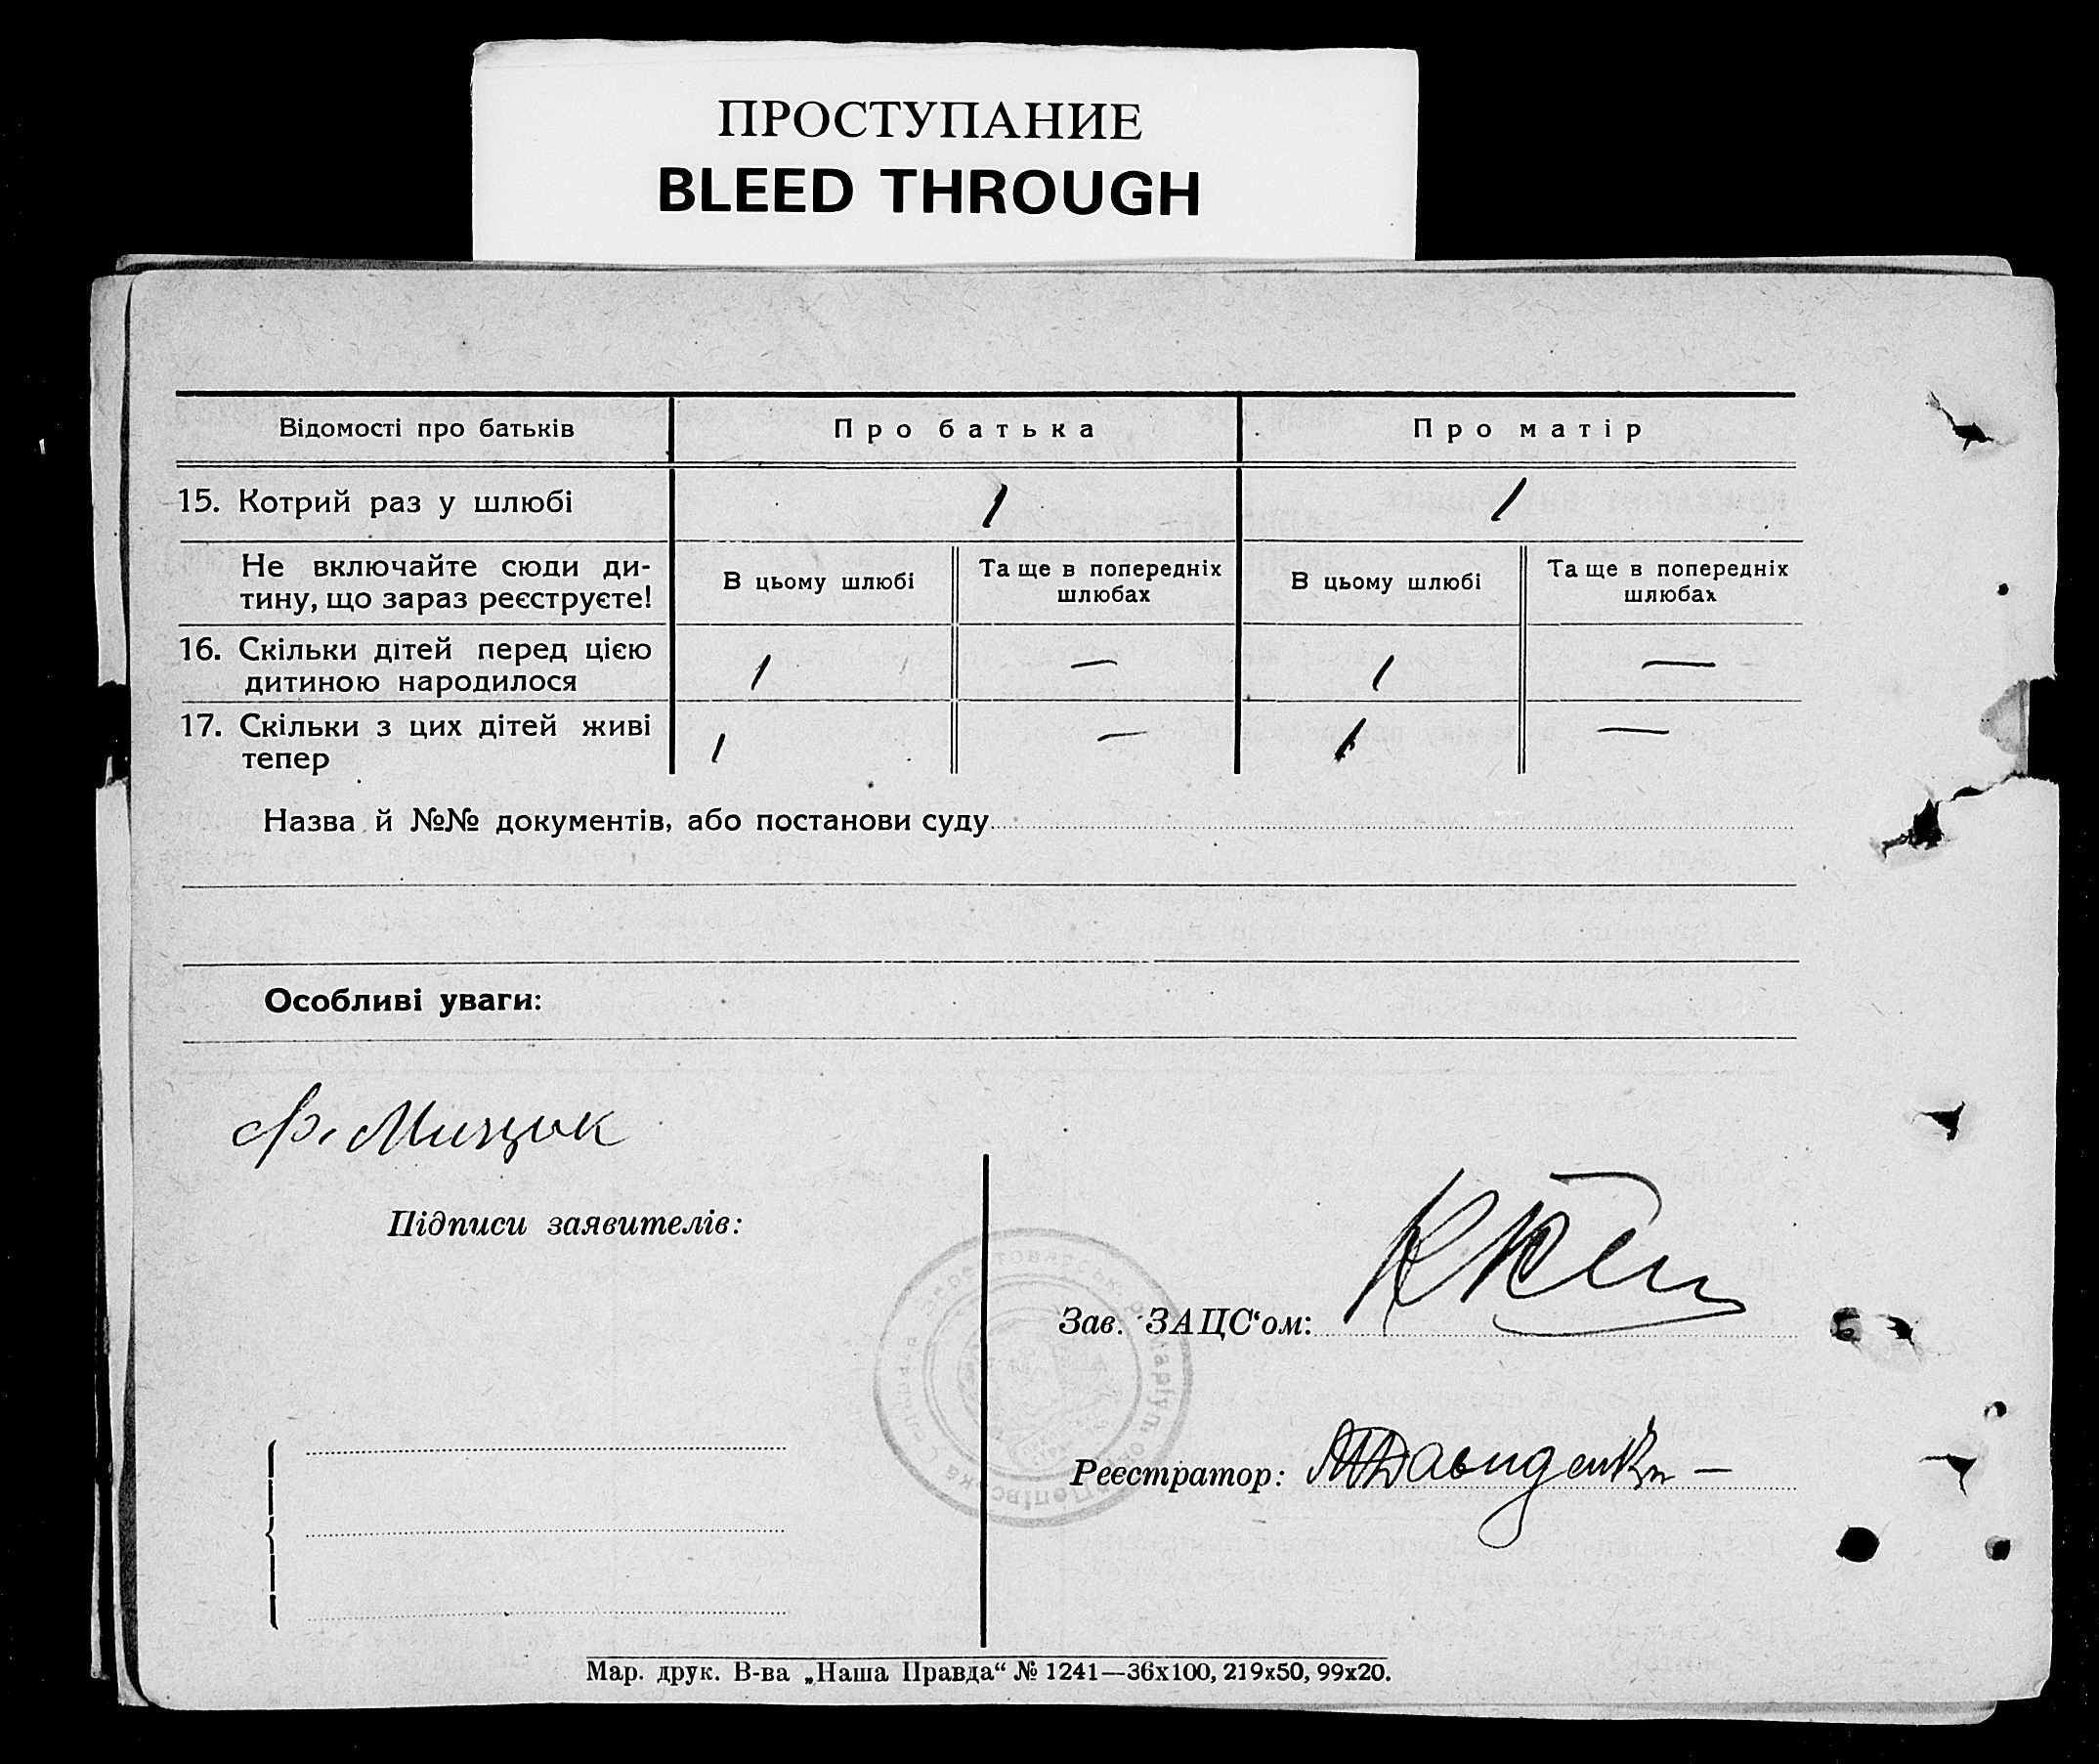 ПРОСТУПАНИЕ
BLEED THROUGH
Відомості про батьків
Про батька
Про матір
15. Котрий раз у шлюбі
1
1
Не включайте сюди ди-
тину, що зараз реєструєте!
В цьому шлюбі
Та ще в попередніх
шлюбах
В цьому шлюбі
Та ще в попередніх
шлюбах
16. Скільки дітей перед цією
дитиною народилося
1
—
1
—
17. Скільки з цих дітей живі
тепер
1
—
1
—
Назва й №№ документів, або постанови суду
Особливі уваги:
Підписи заявителів:
Зав. ЗАЦС‘ом:
Реєстратор:
Мар. друк. В-ва „Наша Правда“ № 1241—36х100, 219х50, 99х20.